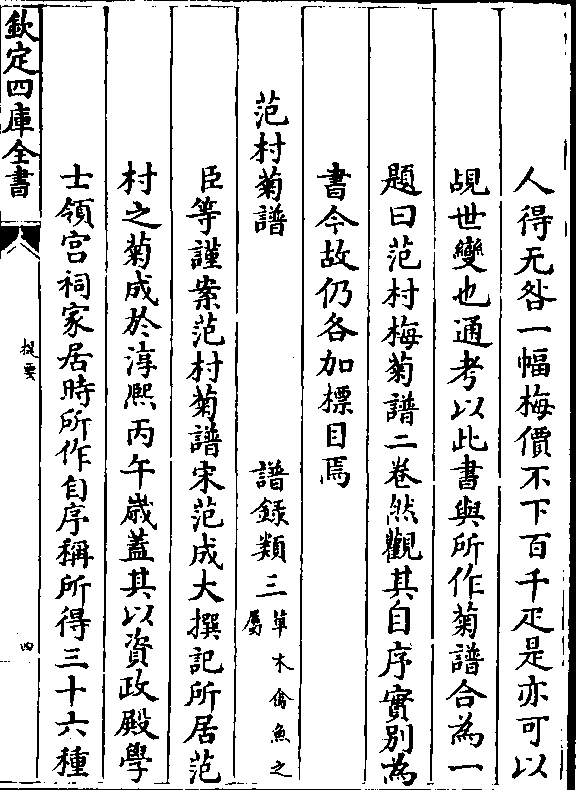 人得无咎一幅梅價不下百千疋是亦可以
覘世變也通考以此書與所作菊譜合為一
題曰范村梅菊譜二卷然觀其自序實别為
書今故仍各加標目焉
范村菊譜 譜錄類三草木禽魚之屬
臣等謹案范村菊譜宋范成大撰記所居范
村之菊成於淳熙丙午歲蓋其以資政殿學
士領宫祠家居時所作自序稱所得三十六種
欽定四庫全書
提要
四